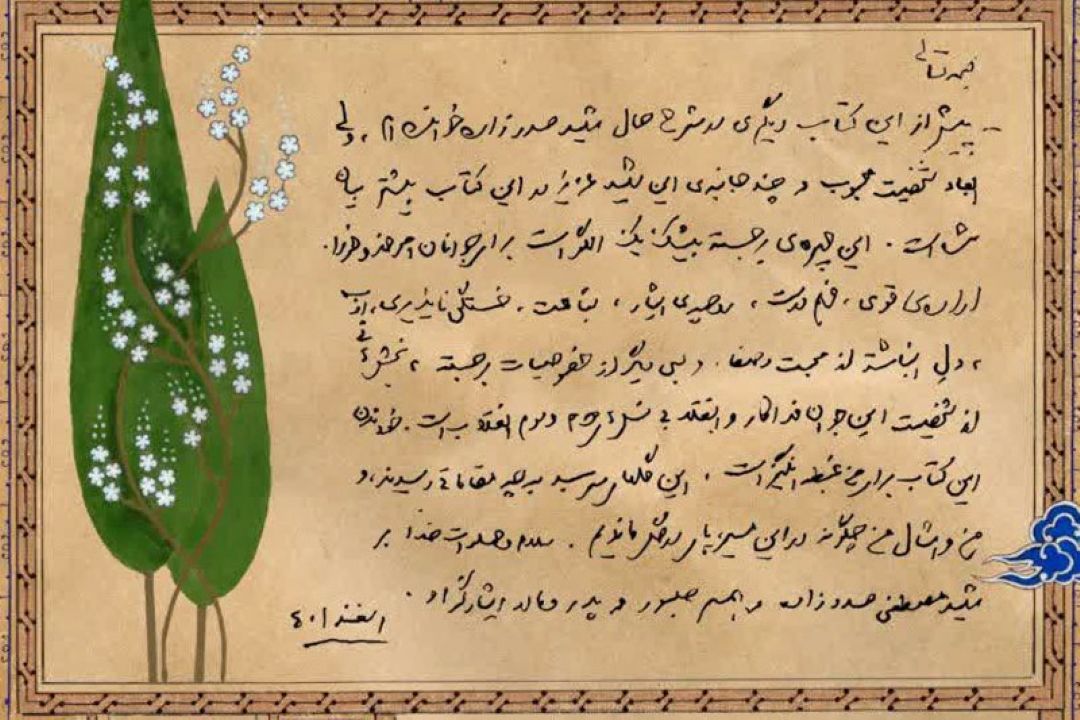 بسمه تعالی
- پیش از این کتاب دیگری در شرح حال شهید صدرزاده خوانده‌ام، ولی
ابعاد شخصیت محبوب و چند جانبه‌ی این شهید عزیز در این کتاب بیشتر بیان
شده است. این چهره‌ی برجسته بیشک یک الگو است برای جوانان امروز و فردا.
اراده‌ی قوی، فهم درست، روحیه‌ی ایثار، شجاعت، خستگی ناپذیری، ادب
، دلِ انباشته از محبت و صفا، و بسی دیگر از خصوصیات برجسته، بخشهائی
از شخصیت این جوان فداکار و انقلابی نسل سوم و انقلاب است. خواندن
این کتاب برای من غبطه‌انگیز است. این گلهای سرسبد به چه مقاماتی رسیدند، و
من و امثال من چگونه در این مسیر پای در گل مانده‌ایم. سلام و صلوات خدا بر
شهید مصطفی صدرزاده و همسر صبور و پدر و مادر ایثارگر او.
اسفند ۴۰۱